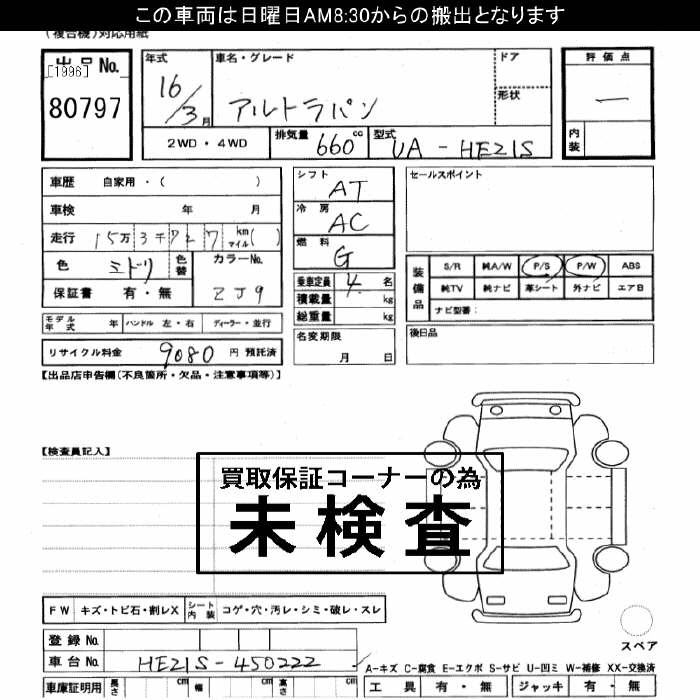 この車両は日曜日AM8:30からの搬出となります
(複合機)対応用紙
出品No. [1996] 80797
年式 16/3月
車名・グレード アルトラパン
ドア
形状
評価点 —
内装
2WD・4WD 排気量 660cc 型式 UA-HE21S
車歴 自家用・( )
車検 年 月
走行 15万3千727 km マイル( )
色 ミドリ 色替 カラーNo. ZJ9
保証書 有・無
シフト AT
冷房 AC
燃料 G
乗車定員 4名
積載量 kg
総重量 kg
セールスポイント
装備品 S/R 純A/W P/S P/W ABS
純TV 純ナビ 革シート 外ナビ エアB
ナビ型番:
モデル年式 年 ハンドル 左・右 ディーラー・並行
名変期限 月 日
後日品
リサイクル料金 9080 円 預託済
【出品店申告欄(不良箇所・欠品・注意事項等)】
【検査員記入】
買取保証コーナーの為
未検査
FW キズ・トビ石・割レX シート内装 コゲ・穴・汚レ・シミ・破レ・スレ
スペア
登録No.
車台No. HE21S-450222
A-キズ C-腐食 E-エクボ S-サビ U-凹ミ W-補修 XX-交換済
車庫証明用 長さ cm 幅 cm 高さ cm
工具 有・無 ジャッキ 有・無